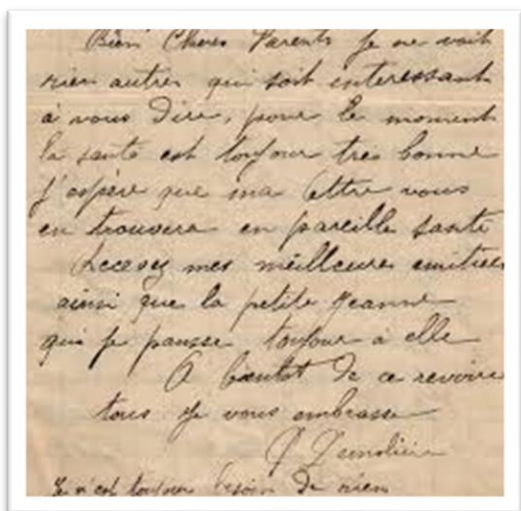 Bien Cheres Parents Je ne voit
rien autres qui soit interessant
à vous Dire, pour le moment
la santé est toujour tres bonne
j'espère que ma lettre vous
en trouvera en pareille santé
Recevez mes meilleures amitiees
ainsi que la petite Jeanne
qui je pansse toujour à elle
A bientot De ce revoire
tous Je vous embrasse
Je n'est toujour besoin De rien